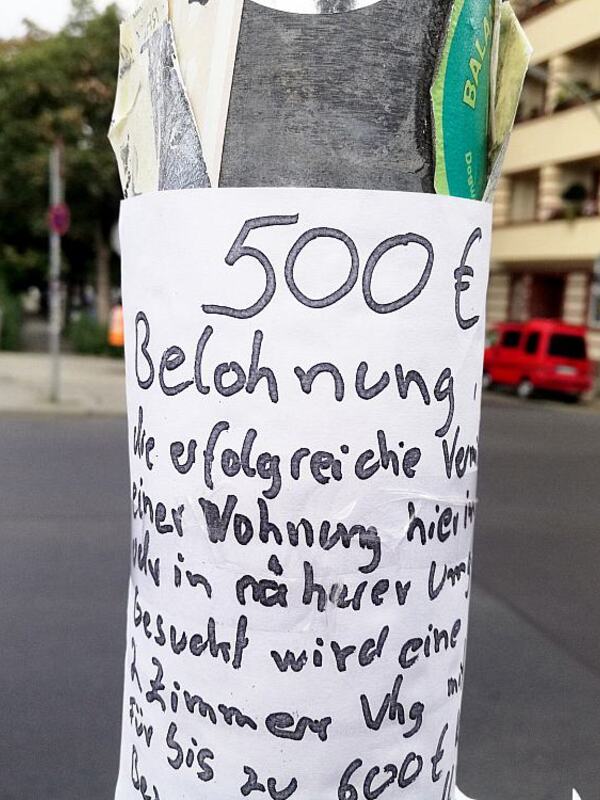 BALA
500 €
Belohnung
die erfolgreiche Verm
einer Wohnung hier in
oder in näherer Umg
Gesucht wird eine
2 Zimmer Whg
Für bis zu 600 €